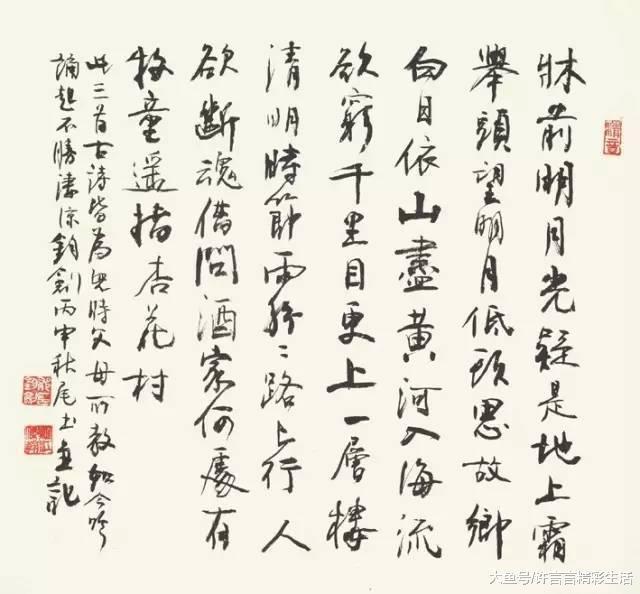 牀前明月光疑是地上霜
舉頭望明月低頭思故鄉
白日依山盡黃河入海流
欲窮千里目更上一層樓
清明時節雨紛〻路上行人
欲斷魂借問酒家何處有
牧童遥指杏花村
此三首古詩皆為兒時父母所教如今吟
誦起不勝淒涼鈞劍丙申秋尾書並記
大鱼号/许言言精彩生活